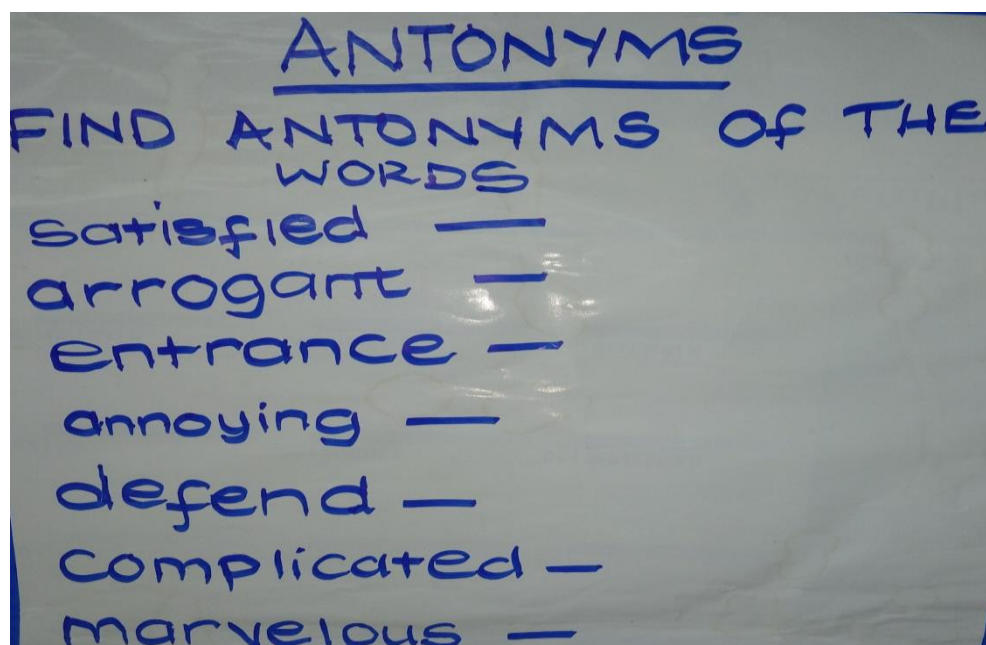 ANTONYMS
FIND ANTONYMS Of THE
WORDS
satisfied —
arrogant —
entrance —
annoying —
defend —
complicated —
marvelous —